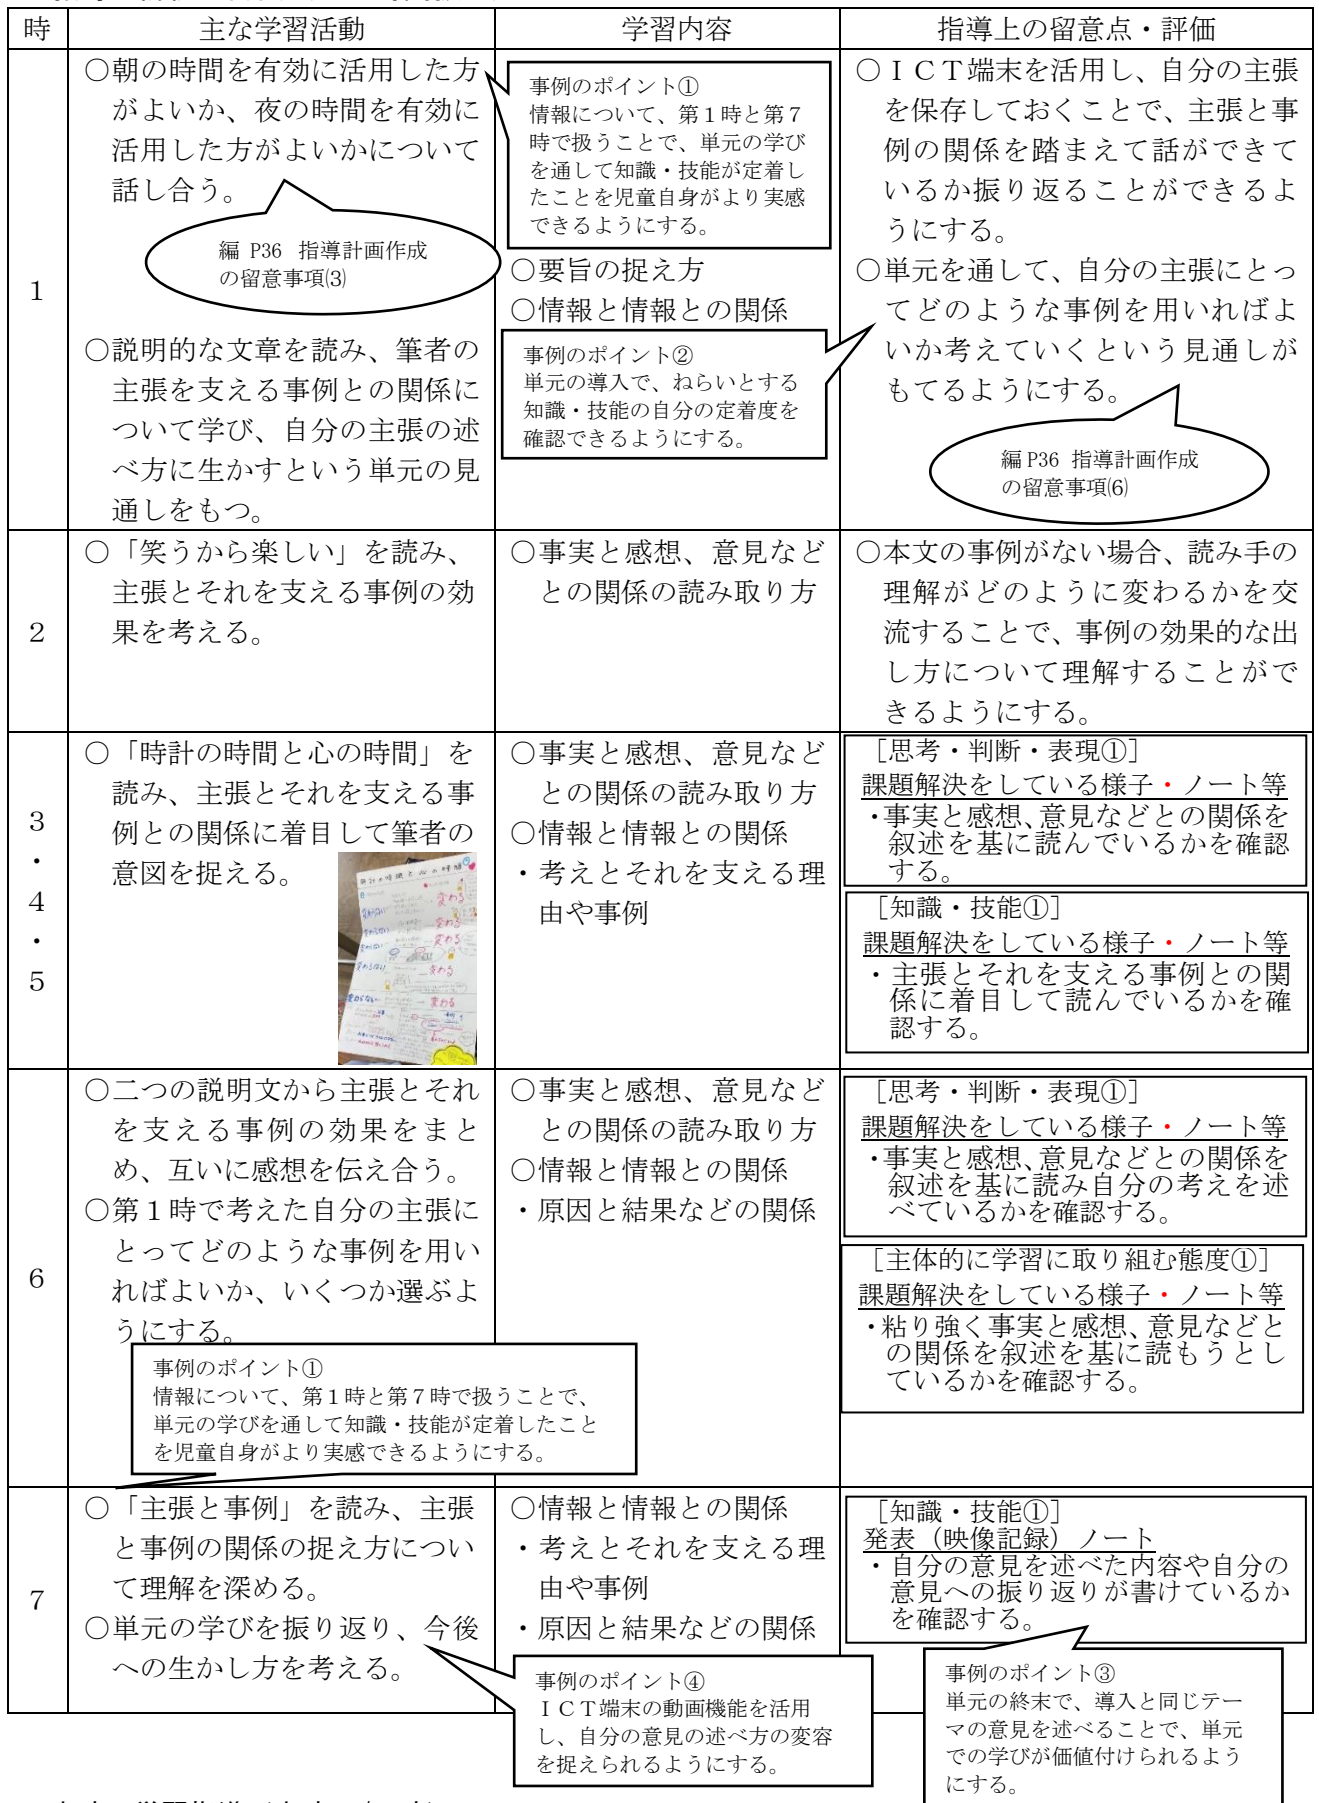 時
主な学習活動
学習内容
指導上の留意点・評価
1
○朝の時間を有効に活用した方
がよいか、夜の時間を有効に
活用した方がよいかについて
話し合う。
編 P36 指導計画作成
の留意事項⑶
○説明的な文章を読み、筆者の
主張を支える事例との関係に
ついて学び、自分の主張の述
べ方に生かすという単元の見
通しをもつ。
事例のポイント①
情報について、第１時と第７
時で扱うことで、単元の学び
を通して知識・技能が定着し
たことを児童自身がより実感
できるようにする。
○要旨の捉え方
○情報と情報との関係
事例のポイント②
単元の導入で、ねらいとする
知識・技能の自分の定着度を
確認できるようにする。
○ＩＣＴ端末を活用し、自分の主張
を保存しておくことで、主張と事
例の関係を踏まえて話ができて
いるか振り返ることができるよ
うにする。
○単元を通して、自分の主張にとっ
てどのような事例を用いればよ
いか考えていくという見通しが
もてるようにする。
編 P36 指導計画作成
の留意事項⑹
2
○「笑うから楽しい」を読み、
主張とそれを支える事例の効
果を考える。
○事実と感想、意見など
との関係の読み取り方
○本文の事例がない場合、読み手の
理解がどのように変わるかを交
流することで、事例の効果的な出
し方について理解することがで
きるようにする。
3
・
4
・
5
○「時計の時間と心の時間」を
読み、主張とそれを支える事
例との関係に着目して筆者の
意図を捉える。
時計の時間と心の時間
変わらない
変わる
変わらない
変わる
変わらない
変わる
変わらない
変わる
変わらない
変わる
○事実と感想、意見など
との関係の読み取り方
○情報と情報との関係
・考えとそれを支える理
由や事例
［思考・判断・表現①］
課題解決をしている様子・ノート等
・事実と感想、意見などとの関係を
叙述を基に読んでいるかを確認
する。
［知識・技能①］
課題解決をしている様子・ノート等
・主張とそれを支える事例との関
係に着目して読んでいるかを確
認する。
6
○二つの説明文から主張とそれ
を支える事例の効果をまと
め、互いに感想を伝え合う。
○第１時で考えた自分の主張に
とってどのような事例を用い
ればよいか、いくつか選ぶよ
うにする。
事例のポイント①
情報について、第１時と第７時で扱うことで、
単元の学びを通して知識・技能が定着したこと
を児童自身がより実感できるようにする。
○事実と感想、意見など
との関係の読み取り方
○情報と情報との関係
・原因と結果などの関係
［思考・判断・表現①］
課題解決をしている様子・ノート等
・事実と感想、意見などとの関係を
叙述を基に読み自分の考えを述
べているかを確認する。
［主体的に学習に取り組む態度①］
課題解決をしている様子・ノート等
・粘り強く事実と感想、意見などと
の関係を叙述を基に読もうとし
ているかを確認する。
7
○「主張と事例」を読み、主張
と事例の関係の捉え方につい
て理解を深める。
○単元の学びを振り返り、今後
への生かし方を考える。
○情報と情報との関係
・考えとそれを支える理
由や事例
・原因と結果などの関係
事例のポイント④
ＩＣＴ端末の動画機能を活用
し、自分の意見の述べ方の変容
を捉えられるようにする。
［知識・技能①］
発表（映像記録）ノート
・自分の意見を述べた内容や自分の
意見への振り返りが書けているか
を確認する。
事例のポイント③
単元の終末で、導入と同じテー
マの意見を述べることで、単元
での学びが価値付けられるよう
にする。